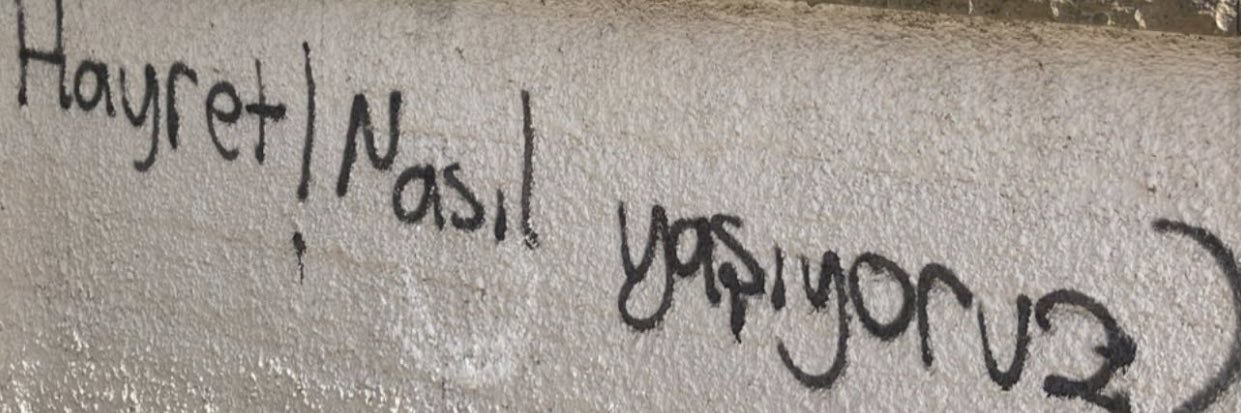 Hayret! Nasıl yaşıyoruz?